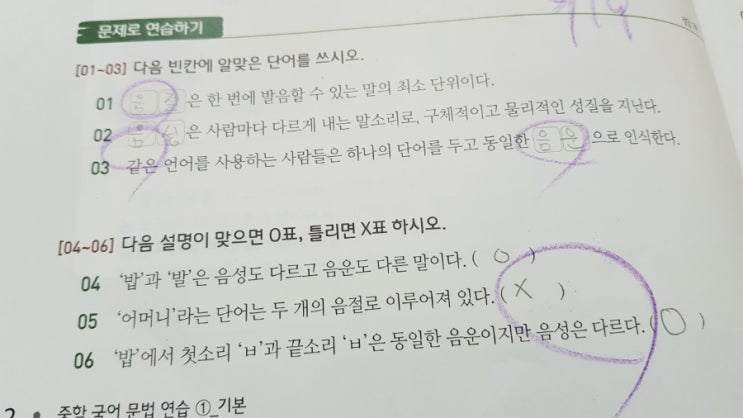 문제로 연습하기
[01~03] 다음 빈칸에 알맞은 단어를 쓰시오.
01 음절은 한 번에 발음할 수 있는 말의 최소 단위이다.
02 음성은 사람마다 다르게 내는 말소리로, 구체적이고 물리적인 성질을 지닌다.
03 같은 언어를 사용하는 사람들은 하나의 단어를 두고 동일한 음운으로 인식한다.
[04~06] 다음 설명이 맞으면 O표, 틀리면 X표 하시오.
04 ‘밥’과 ‘발’은 음성도 다르고 음운도 다른 말이다. ( O )
05 ‘어머니’라는 단어는 두 개의 음절로 이루어져 있다. ( X )
06 ‘밥’에서 첫소리 ‘ㅂ’과 끝소리 ‘ㅂ’은 동일한 음운이지만 음성은 다르다. ( O )
2 • 중학 국어 문법 연습 ①_기본